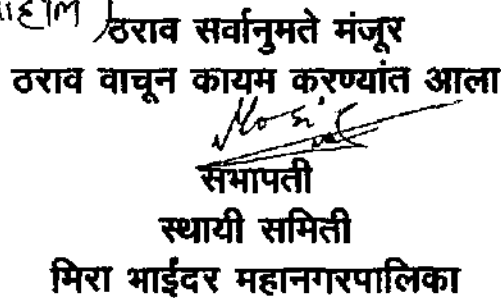 ठराव सर्वानुमते मंजूर
ठराव वाचून कायम करण्यांत आला
सभापती
स्थायी समिती
मिरा भाईंदर महानगरपालिका